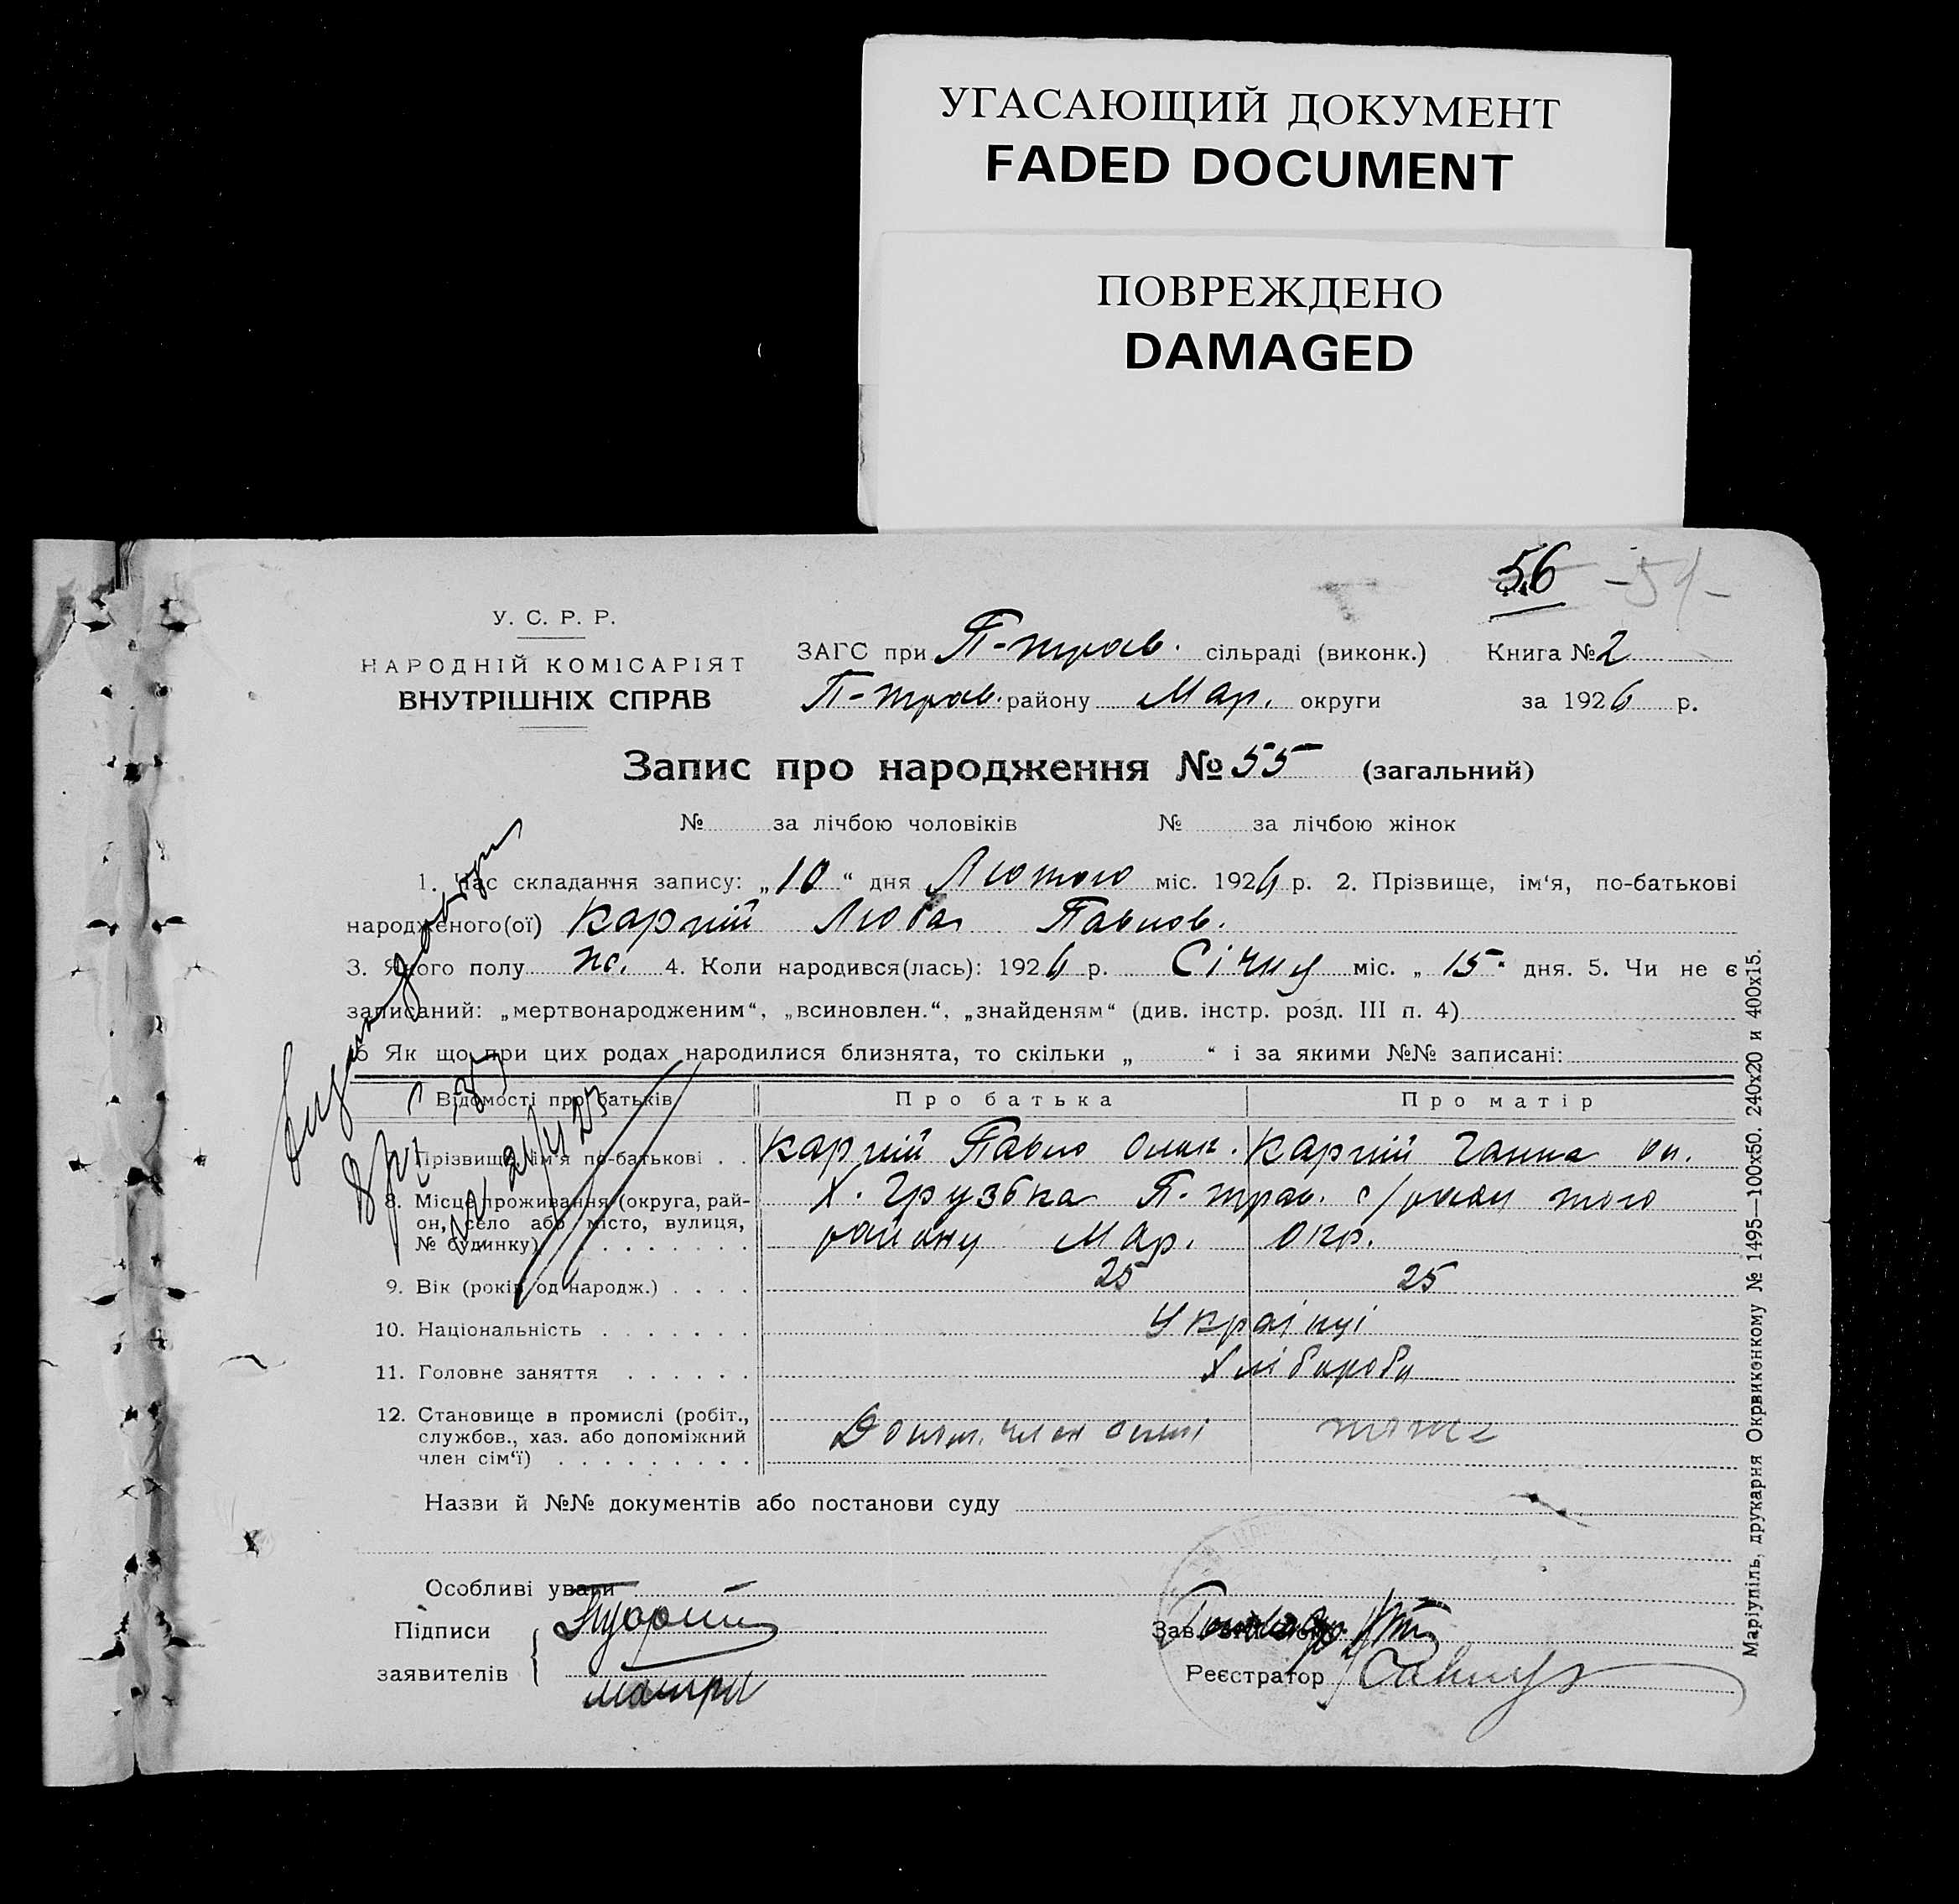 УГАСАЮЩИЙ ДОКУМЕНТ
FADED DOCUMENT
ПОВРЕЖДЕНО
DAMAGED
56 -51-
У. С. Р. Р.
НАРОДНІЙ КОМІСАРІЯТ
ВНУТРІШНІХ СПРАВ
ЗАГС при П-трав. сільраді (виконк.) Книга № 2
П-трав. району Мар. округи за 1926 р.
Запис про народження № 55 (загальний)
№ за лічбою чоловіків № за лічбою жінок
1. Час складання запису: „10“ дня Лютого міс. 1926 р. 2. Прізвище, ім‘я, по-батькові
народженого(ої) Карпій Люба Павлов.
3. Якого полу ж. 4. Коли народився(лась): 1926 р. Січня міс. „15“ дня. 5. Чи не є
записаний: „мертвонародженим“, „всиновлен.“, „знайденям“ (див. інстр. розд. III п. 4)
6 Як що при цих родах народилися близнята, то скільки „ “ і за якими №№ записані:
Відомості про батьків Про батька Про матір
Прізвище ім‘я по-батькові Карпій Павло Карпій Ганна
8. Місце проживання (округа, рай-
он, село або місто, вулиця,
№ будинку)
Х. Грузька П-трав. с/ради того
району Мар. окр.
9. Вік (років од народж.) 25 25
10. Національність Українці
11. Головне заняття Хлібороби
12. Становище в промислі (робіт.,
службов., хаз. або допоміжний
член сім‘ї)
член тоже
Назви й №№ документів або постанови суду
Особливі уваги
Підписи
заявителів
матри
Зав.
Реєстратор
Маріупіль, друкарня Окрвиконкому № 1495—100х50. 240х20 и 400х15.